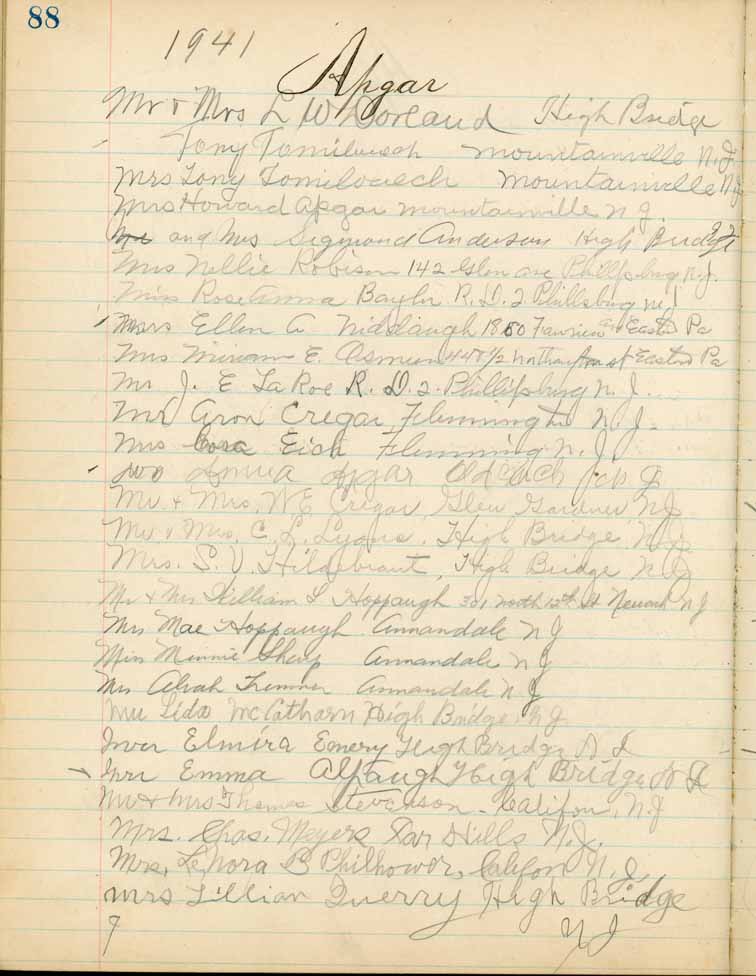 88
1941
Apgar
Mr & Mrs L W Dorland High Bridge
Tony Tomilowich Mountainville N.J.
Mrs Tony Mountainville N.J.
Mrs Howard Apgar Mountainville N J.
Mr and Mrs Sigmond Anderson High Bridge
Mrs Nellie Robison 142 Glen ave Phillpsburg N.J.
Miss Rose Anna Baylor R.D. 2 Phillsburg N.J.
Mrs Ellen A Easton Pa
Mrs Miriam E. Osmun st Easton Pa
Mr J. E LaRoe R. D. 2. Phillipsburg N. J.
Mr Aron Cregar Flemington N. J.
Mrs Cora Eich Flemming N. J.
Apgar
Mr. & Mrs. W E Cregar, Glen Gardner N J
Mr. & Mrs. C. L. Lyons. High Bridge. N. J.
Mrs. S. V. Hildebrant, High Bridge N J
Mr & Mrs William L Hoppaugh 301 North 12th St Newark N J
Mrs Mae Hoppaugh Annandale N J
Miss Minnie Sharp Annandale N J
Mrs Alvah Annandale N J
Lida McCatharn High Bridge N J
Elmira Emery High Bridge N J
Emma Alpaugh High Bridge N J
Mr & Mrs Thomas Stevenson - Califon, N. J
Mrs. Chas. Meyers Far Hills N. J.
Mrs. Lenora B Philhower, Califon N. J.
Mrs Lillian Querry High Bridge
N J